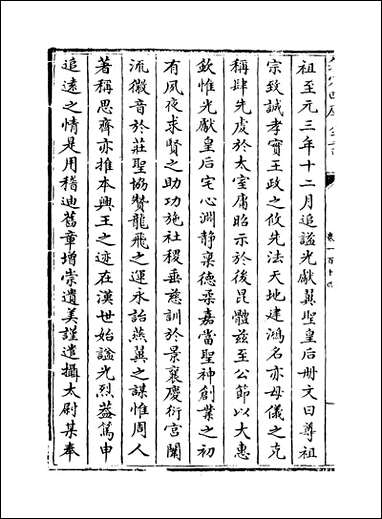 祖至元三年十二月追謚光獻翼聖皇后册文曰尊祖
宗致誠孝實王政之攸先法天地建鴻名亦母儀之克
稱肆先虔於太室庸昭示於後昆體兹至公節以大惠
欽惟光獻皇后宅心淵静禀德柔嘉當聖神創業之初
有夙夜求賢之助功施社稷垂慈訓於景襄慶衍宫闈
流徽音於莊聖協贊龍飛之運永詒燕翼之謀惟周人
著稱思齊亦推本興王之迹在漢世始謚光烈蓋篤申
追遠之情是用稽迪舊章增崇遺美謹遣攝太尉某奉